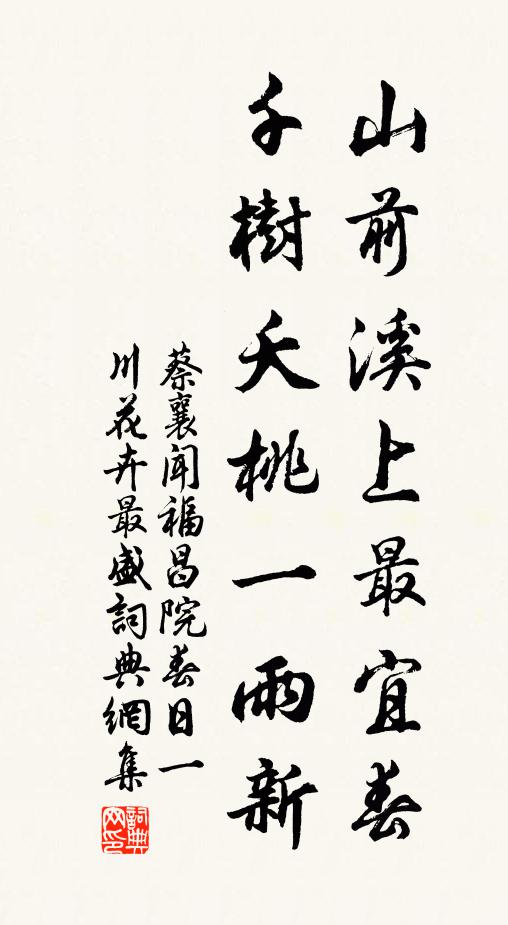 山前溪上最宜春
千樹夭桃一雨新
蔡襄聞福昌院春日一
川花卉最盛詞典網集
詞典
网印